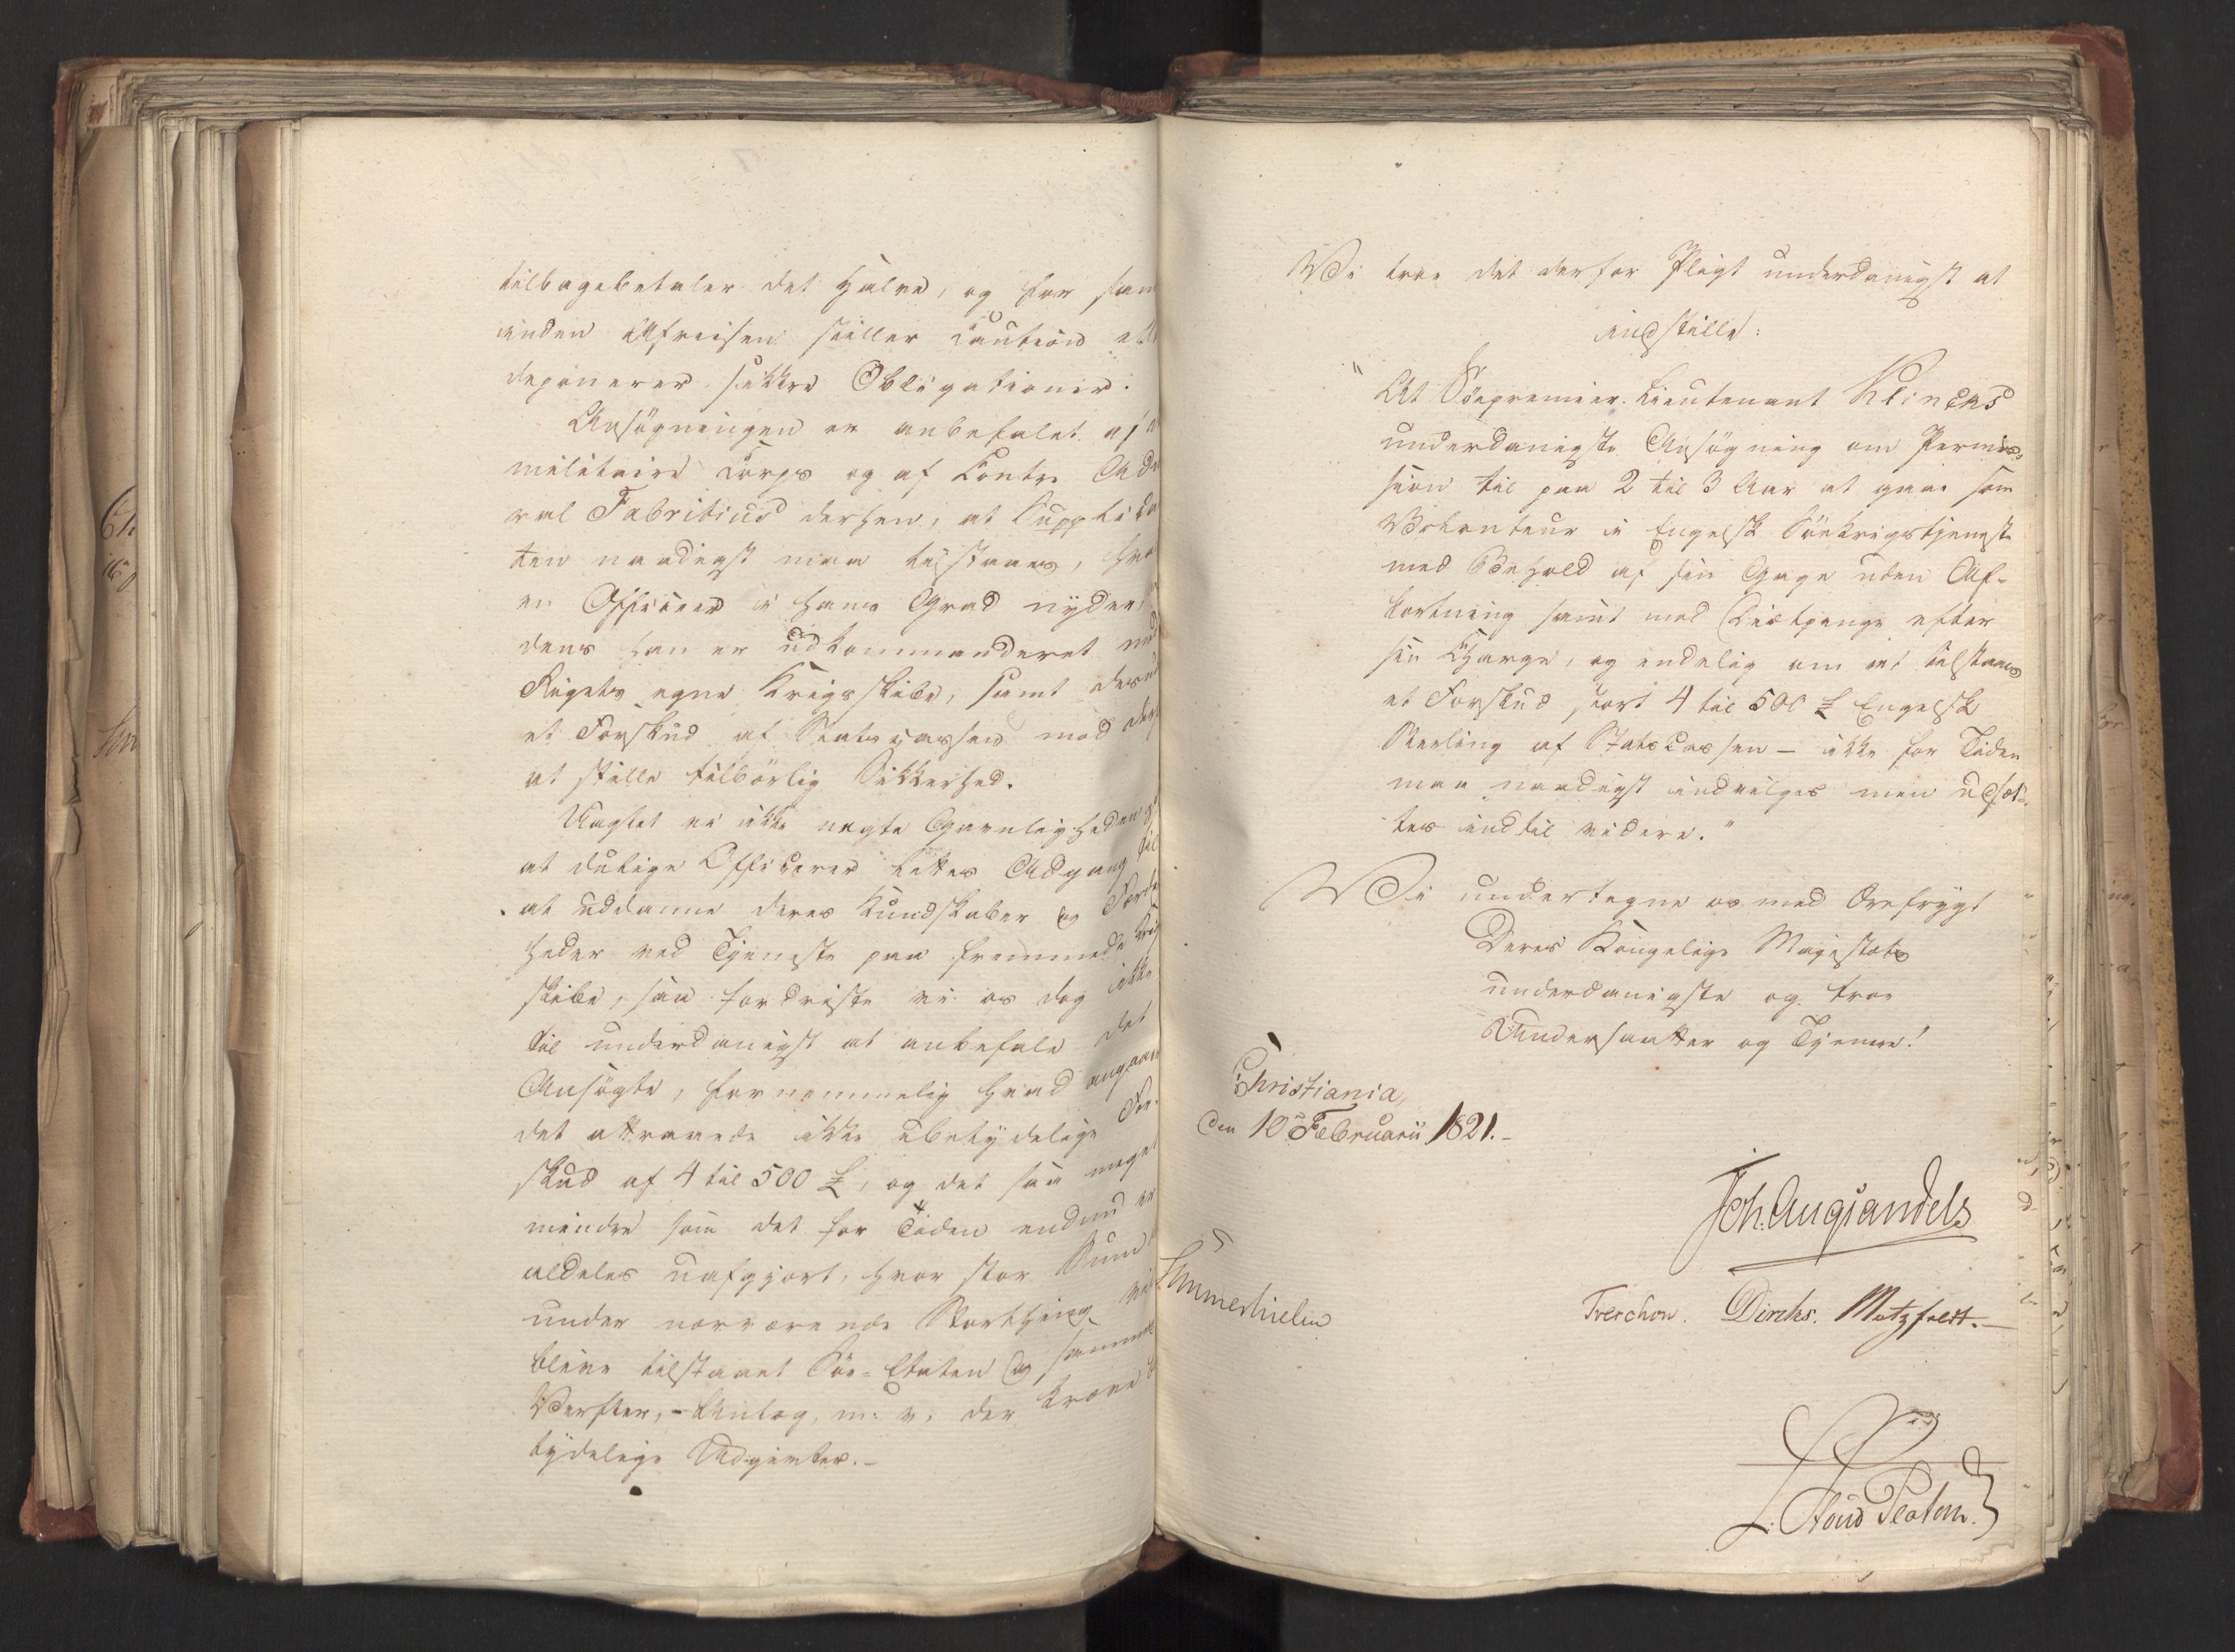 tilbagebetaler det Halve, og for sam
inden Afreisen stiller Caution ell
deponerer sikkre Obligationer.
Ansögningen er anbefalet af
militaire Corps og af Contre Ad
ral Fabritius derhen, at Supplica
ten naadigst maa tilstaaes, hva
en Officier i hans Grad nyder,
dens han er udkommanderet med
Rigets egne Krigsskibe, samt desu
et Forskud af Statscassen mod
at stille tilbörlig Sikkerhed.
Uagtet vi ikke negte Gavnligheden
at duelige Officerer lettes Adgang til
at uddanne deres Kundskaber og Færdi
heder ved Tjeneste paa fremmede Krigs
skibe, saa fordriste vi os dog ikke
til underdanigst at anbefale det
Ansögte, fornemmelig hvad angaae
det attraaede ikke ubetydelige For-
skud af 4 til 500 £, og det saa meget
mindre som det for Tiden endnu er
aldeles uafgjort, hvor stor Sum
under nærværende Storthing vil
blive tilstaaet Söe-Etaten og sammes
Verfter, - Anlæg, m. v. der kræve
tydelige Udgivter. -
Vi troe det derfor Pligt underdanigst at
indstille:
"At Söepremier-Lieutenant Klincks
underdanigste Ansögning om Permis-
sion til paa 2 til 3 Aar at gaae som
Volonteur i Engelsk Söekrigstjeneste
med Behold af sin Gage uden Af-
kortning samt med Diætpenge efter
sin Charge, og endelig om at tilstaaes
et Forskud stort 4 til 500 £ Engelsk
Sterling af Statscassen – ikke for Tiden
maa naadigst indvilges men udsæt-
tes indtil videre."
Vi undertegne os med Ærefrygt
Deres Kongelige Majestæts
underdanigste og troe
Undersaatter og Tjenere!
Christiania,
den 10 Februarii 1821. -
Joh. Aug Sandels
Sommerhielm
Treschow. Diriks. Motzfeldt. -
L. Stoud Platou.